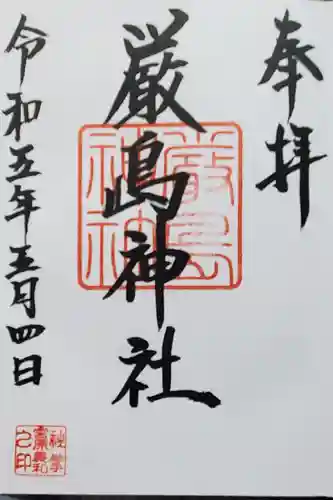 奉拝
厳嶋神社
厳島神社
令和五年五月四日